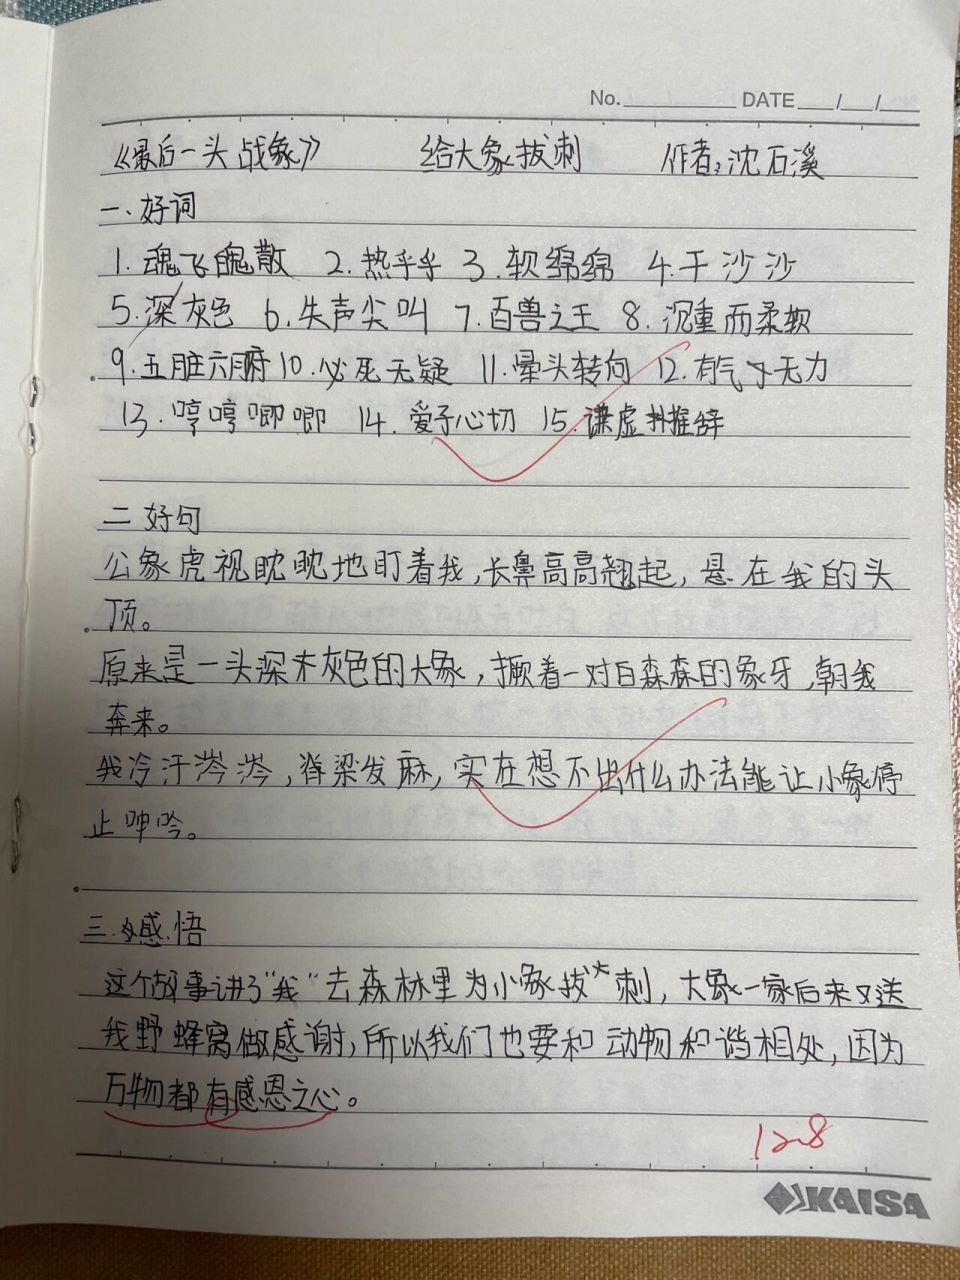 No. DATE / /
《最后一头战象》 给大象拔刺 作者:沈石溪
一、好词
1. 魂飞魄散 2. 热乎乎 3. 软绵绵 4. 干沙沙
5. 深灰色 6. 失声尖叫 7. 百兽之王 8. 沉重而柔软
9. 五脏六腑 10. 必死无疑 11. 晕头转向 12. 有气无力
13. 哼哼唧唧 14. 爱子心切 15. 谦虚推辞
二 好句
公象虎视眈眈地盯着我,长鼻高高翘起,悬在我的头
顶。
原来是一头深灰色的大象,撅着一对白森森的象牙,朝我
奔来。
我冷汗涔涔,脊梁发麻,实在想不出什么办法能让小象停
止呻吟。
三.感悟
这个故事讲了“我”去森林里为小象拔刺,大象一家后来又送
我野蜂窝做感谢,所以我们也要和动物和谐相处,因为
万物都有感恩之心。
12.8
KAISA